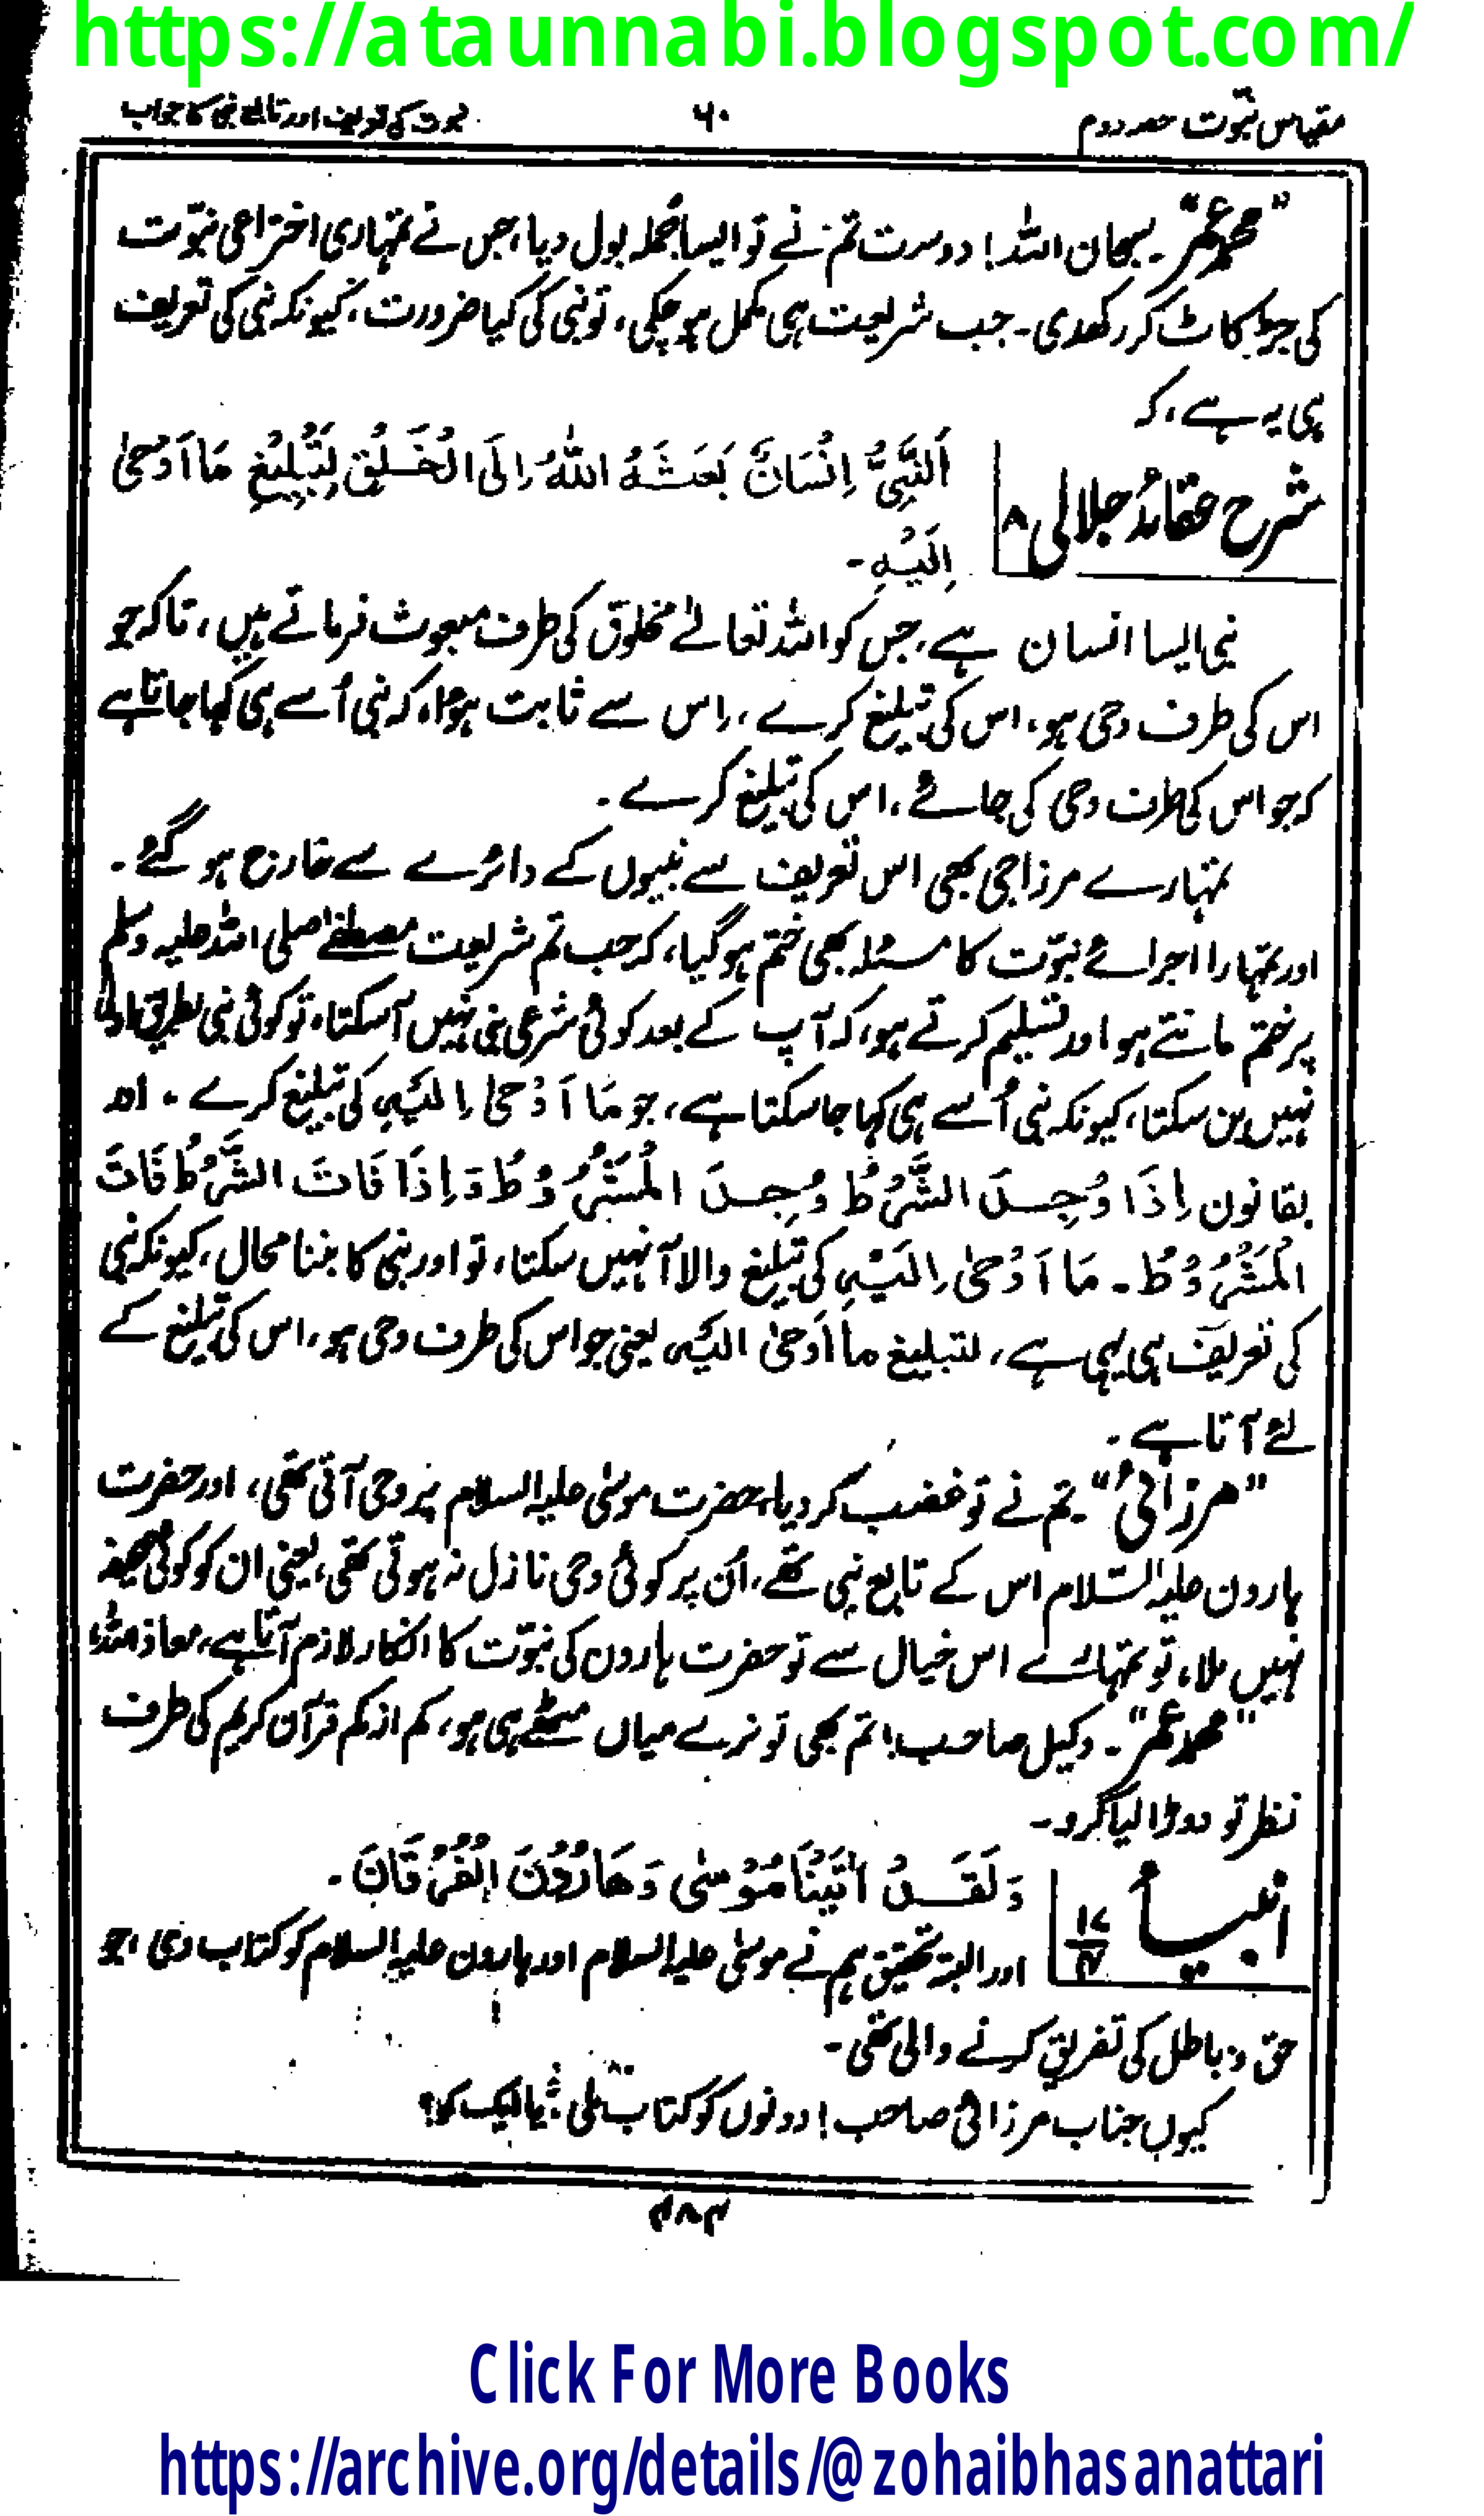 https://ataunnabi.blogspot.com/
مقیاس نبوّت حصہ دوم
۶۰
نبوت کی تعریف اور تابع نبی کا جواب
”محمد عمر“۔ سبحان اللہ! دوست تم نے تو ایسا جُملہ بول دیا، جس نے تمہاری اختراعی نبوّت
کی جڑ کاٹ کر رکھدی۔ جب شریعت ہی مکمل ہو چکی، تو نبی کی کیا ضرورت، کیونکہ نبی کی تعریف
ہی یہ ہے، کہ
شرح عقائدُ جلالی ۸
اَلنَّبِیُّ اِنْسَانٌ بَعَثَہُ اللّٰہُ اِلَی الْخَلْقِ لِتَبْلِیْغِ مَا اَوْحیٰ
اِلَیْہِ۔
نبی ایسا انسان ہے، جس کو اللہ تعالےٰ مخلوق کی طرف مبعوث فرماتے ہیں، تاکہ جو
اس کی طرف وحی ہو، اس کی تبلیغ کرے، اِس سے ثابت ہوا، کہ نبی اُسے ہی کہا جاتا ہے
کہ جو اس کی طرف وحی کی جائے، اس کی تبلیغ کرے۔
تمہارے مرزا جی بھی اس تعریف سے نبیوں کے دائرے سے خارج ہو گئے۔
اور تمہارا اجرائے نبوّت کا مسئلہ بھی ختم ہو گیا، کہ جب تم شریعت مصطفےٰ صلی اللہ علیہ وسلم
پر ختم مانتے ہو اور تسلیم کرتے ہو، کہ آپ کے بعد کوئی شرعی نبی نہیں آ سکتا، تو کوئی نبی بطریق اولیٰ
نہیں بن سکتا، کیونکہ نبی اُسے ہی کہا جا سکتا ہے، جو مَا اَوْحیٰ اِلَیْہِ کی تبلیغ کرے۔ اور
بقانون اِذَا وُجِدَ الشَّرْطُ وُجِدَ الْمَشْرُوْطُ وَ اِذَا فَاتَ الشَّرْطُ فَاتَ
الْمَشْرُوْطُ۔ مَا اَوْحیٰ اِلَیْہِ کی تبلیغ والا آ نہیں سکتا، تو اور نبی کا بننا محال، کیونکہ نبی
کی تعریف ہی یہی ہے، لتبلیغ ما اوحیٰ الیہ یعنی جو اس کی طرف وحی ہو، اس کی تبلیغ کے
لئے آتا ہے۔
”مرزائی“۔ تم نے تو غضب کر دیا، حضرت موسٰی علیہ السلام پر وحی آتی تھی، اور حضرت
ہارون علیہ السّلام اس کے تابع نبی تھے، اُن پر کوئی وحی نازل نہ ہوتی تھی، یعنی ان کو کوئی صحیفہ
نہیں ملا، تو تمہارے اس خیال سے تو حضرت ہارون کی نبوّت کا انکار لازم آتا ہے، معاذ اللہ،
”محمد عمر“۔ وکیل صاحب! تم بھی تو نرے میاں مٹھے ہی ہو، کم از کم قرآن کریم کی طرف
نظر تو دوڑا لیا کرو۔
انبیأ ۱۷
وَلَقَدْ اٰتَیْنَا مُوْسٰی وَ ھَارُوْنَ الْفُرْقَانَ۔
اور البتہ تحقیق ہم نے موسٰی علیہ السلام اور ہارون علیہ السلام کو کتاب دی، جو
حق و باطل کی تفریق کرنے والی تھی۔
کیوں جناب مرزائی صاحب! دونوں کو کتاب ملی؟ یا ایک کو؟
۴۸۴
Click For More Books
https://archive.org/details/@zohaibhasanattari